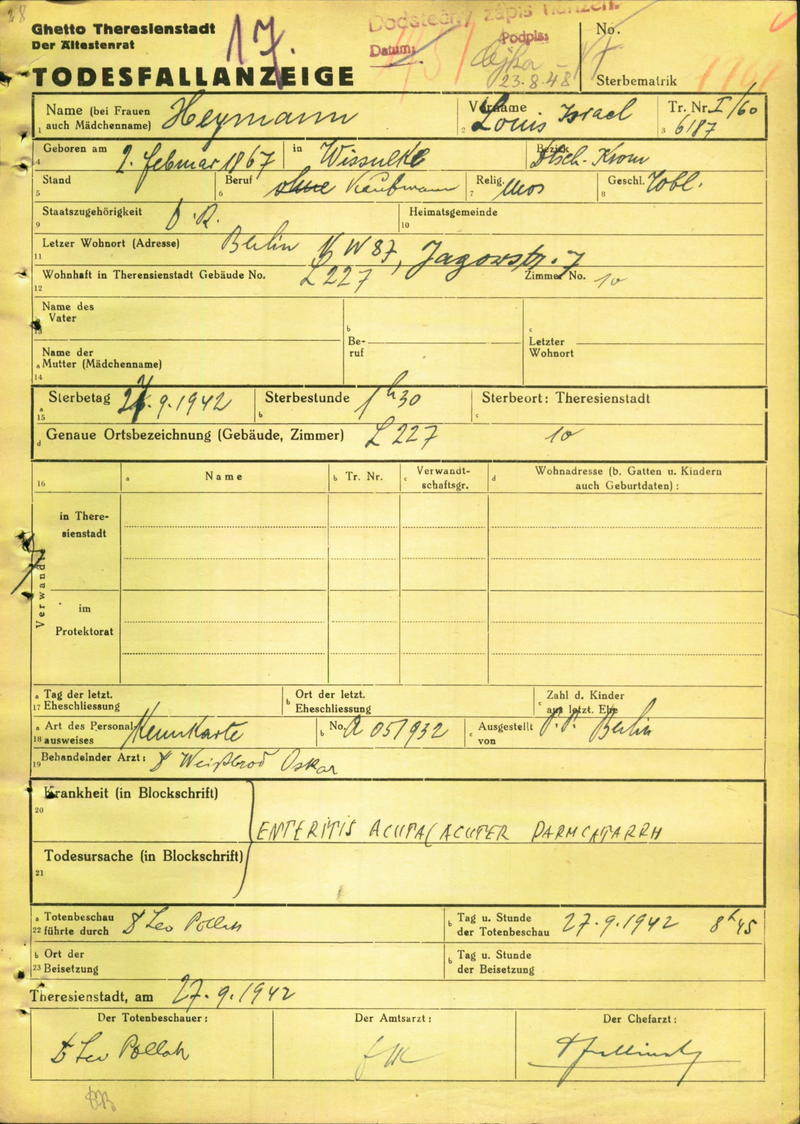 Ghetto Theresienstadt
Der Ältestenrat
17.
TODESFALLANZEIGE
Dodstečný zápis nařízen.
Datum: Podpis:
23.8.48
No.
Sterbematrik
Name (bei Frauen auch Mädchenname) Heymann
1
Vorname Louis Israel
2
Tr. Nr. I/60
3 6187
Geboren am 2. Februar 1867 in Wissulke Bezirk Dtsch-Krone
4
Stand Beruf ohne Kaufmann Relig. mos Geschl.
5 6 7 8
Staatszugehörigkeit D.R. Heimatsgemeinde
9 10
Letzer Wohnort (Adresse) Berlin NW 87, Jagowstr. 7
11
Wohnhaft in Therensienstadt Gebäude No. L 227 Zimmer No. 10
12
Name des Vater
13
Name der Mutter (Mädchenname)
a
14
b Beruf
c Letzter Wohnort
a Sterbetag 27.9.1942 Sterbestunde 1h30 Sterbeort: Theresienstadt
15 b c
d Genaue Ortsbezeichnung (Gebäude, Zimmer) L 227 10
16 a Name b Tr. Nr. c Verwandtschaftsgr. d Wohnadresse (b. Gatten u. Kindern auch Geburtdaten):
Verwandte
in Theresienstadt
im Protektorat
a Tag der letzt. b Ort der letzt. c Zahl d. Kinder
17 Eheschliessung Eheschliessung aus letzt. Ehe
a Art des Personal- Kennkarte b No. A 051932 c Ausgestellt P.P. Berlin
18 ausweises von
19 Behandelnder Arzt: Dr Weißbrod Oskar
Krankheit (in Blockschrift)
20
ENTERITIS ACUTA (ACUTER DARMCATARRH
Todesursache (in Blockschrift)
21
a Totenbeschau Dr Leo Pollak b Tag u. Stunde 27.9.1942 8h45
22 führte durch der Totenbeschau
b Ort der b Tag u. Stunde
23 Beisetzung der Beisetzung
Theresienstadt, am 27.9.1942
Der Totenbeschauer: Der Amtsarzt: Der Chefarzt:
Dr Leo Pollak